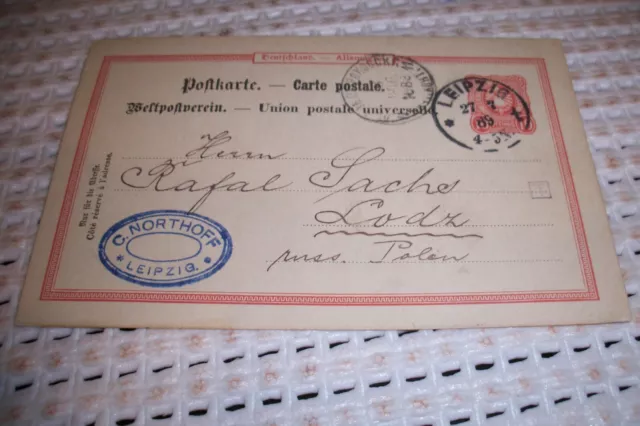 Deutschland. — Allemagne.
Postkarte. — Carte postale.
Weltpostverein. — Union postale universelle.
Nur für die Adresse.
Côté réservé à l'adresse.
LEIPZIG
4-5
Herrn
Rafal Sachs
Lodz
russ. Polen
C. NORTHOFF
* LEIPZIG. *